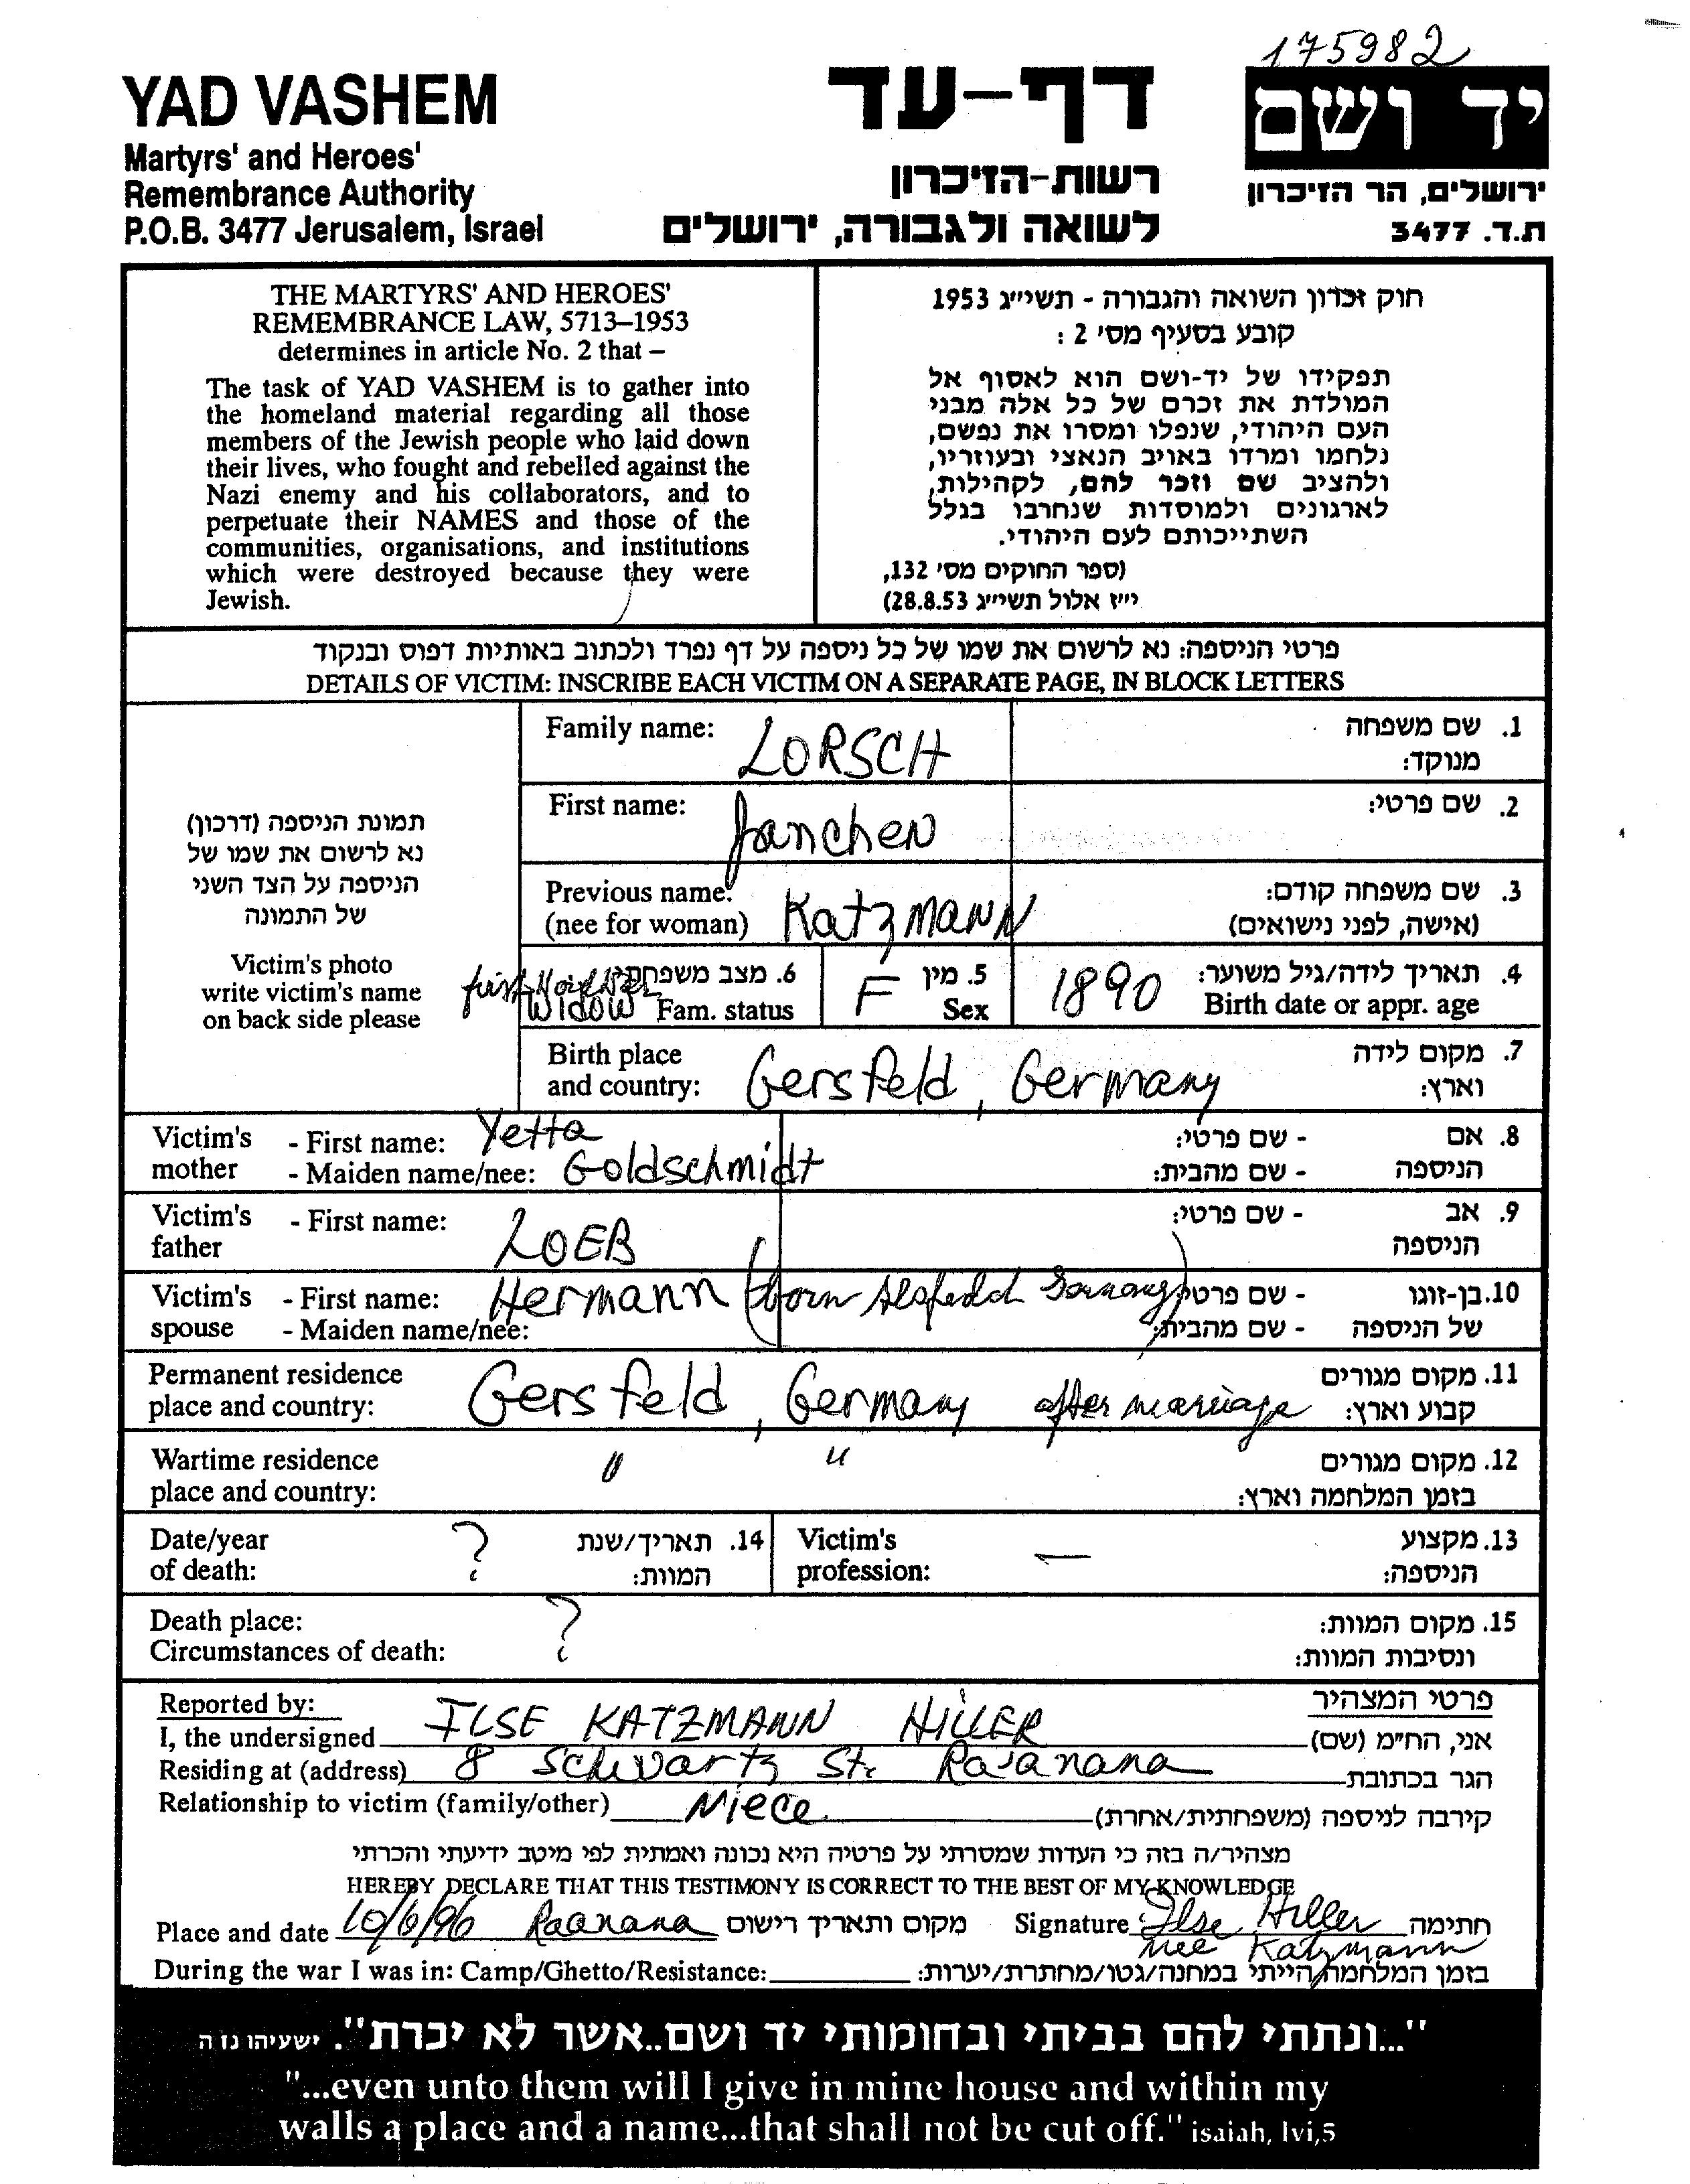 175982
YAD VASHEM
Martyrs' and Heroes'
Remembrance Authority
P.O.B. 3477 Jerusalem, Israel
דף-עד
רשות-הזיכרון
לשואה ולגבורה, ירושלים
יד ושם
ירושלים, הר הזיכרון
ת.ד. 3477
THE MARTYRS' AND HEROES'
REMEMBRANCE LAW, 5713–1953
determines in article No. 2 that –
The task of YAD VASHEM is to gather into
the homeland material regarding all those
members of the Jewish people who laid down
their lives, who fought and rebelled against the
Nazi enemy and his collaborators, and to
perpetuate their NAMES and those of the
communities, organisations, and institutions
which were destroyed because they were
Jewish.
חוק זכרון השואה והגבורה - תשי״ג 1953
קובע בסעיף מס׳ 2 :
תפקידו של יד-ושם הוא לאסוף אל
המולדת את זכרם של כל אלה מבני
העם היהודי, שנפלו ומסרו את נפשם,
נלחמו ומרדו באויב הנאצי ובעוזריו,
ולהציב שם וזכר להם, לקהילות,
לארגונים ולמוסדות שנחרבו בגלל
השתייכותם לעם היהודי.
(ספר החוקים מס׳ 132,
י״ז אלול תשי״ג 28.8.53)
פרטי הניספה: נא לרשום את שמו של כל ניספה על דף נפרד ולכתוב באותיות דפוס ובנקוד
DETAILS OF VICTIM: INSCRIBE EACH VICTIM ON A SEPARATE PAGE, IN BLOCK LETTERS
תמונת הניספה (דרכון)
נא לרשום את שמו של
הניספה על הצד השני
של התמונה
Victim's photo
write victim's name
on back side please
Family name: LORSCH 1. שם משפחה
מנוקד:
First name: Janchen 2. שם פרטי:
Previous name: Katzmann 3. שם משפחה קודם:
(nee for woman) (אישה, לפני נישואים)
6. מצב משפחתי 5. מין 4. תאריך לידה/גיל משוער:
Widow Fam. status F Sex 1890 Birth date or appr. age
Birth place 7. מקום לידה
and country: Gersfeld, Germany וארץ:
Victim's - First name: Yetta - שם פרטי: 8. אם
mother - Maiden name/nee: Goldschmidt - שם מהבית: הניספה
Victim's - First name: LOEB - שם פרטי: 9. אב
father הניספה
Victim's - First name: Hermann (born - שם פרטי 10. בן-זוגו
spouse - Maiden name/nee: - שם מהבית: של הניספה
Permanent residence 11. מקום מגורים
place and country: Gersfeld, Germany after marriage קבוע וארץ:
Wartime residence " " 12. מקום מגורים
place and country: בזמן המלחמה וארץ:
Date/year ? 14. תאריך/שנת Victim's — 13. מקצוע
of death: המוות: profession: הניספה:
Death place: ? 15. מקום המוות:
Circumstances of death: ונסיבות המוות:
Reported by: פרטי המצהיר
I, the undersigned ILSE KATZMANN HILLER אני, החי״מ (שם)
Residing at (address) 8 Schwartz St. Ra'anana הגר בכתובת
Relationship to victim (family/other) Niece קירבה לניספה (משפחתית/אחרת)
מצהיר/ה בזה כי העדות שמסרתי על פרטיה היא נכונה ואמתית לפי מיטב ידיעתי והכרתי
HEREBY DECLARE THAT THIS TESTIMONY IS CORRECT TO THE BEST OF MY KNOWLEDGE
Place and date 10/6/96 Raanana מקום ותאריך רישום Signature Ilse Hiller חתימה
nee Katzmann
During the war I was in: Camp/Ghetto/Resistance: בזמן המלחמה הייתי במחנה/גטו/מחתרת/יערות:
"...ונתתי להם בביתי ובחומותי יד ושם..אשר לא יכרת". ישעיהו נו ה
"...even unto them will I give in mine house and within my
walls a place and a name...that shall not be cut off." isaiah, lvi,5